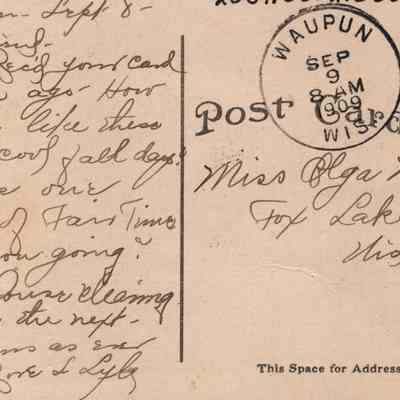 Sept 8-
Rec'd your card
ago- How
like these
cool fall days?
one
of Fair Time
you going?
House cleaning
the next-
as ever
Love L Lyla
WAUPUN
SEP
9
8-AM
1909
WIS.
Post Card
Miss Olga
Fox Lake
Wis
This Space for Address